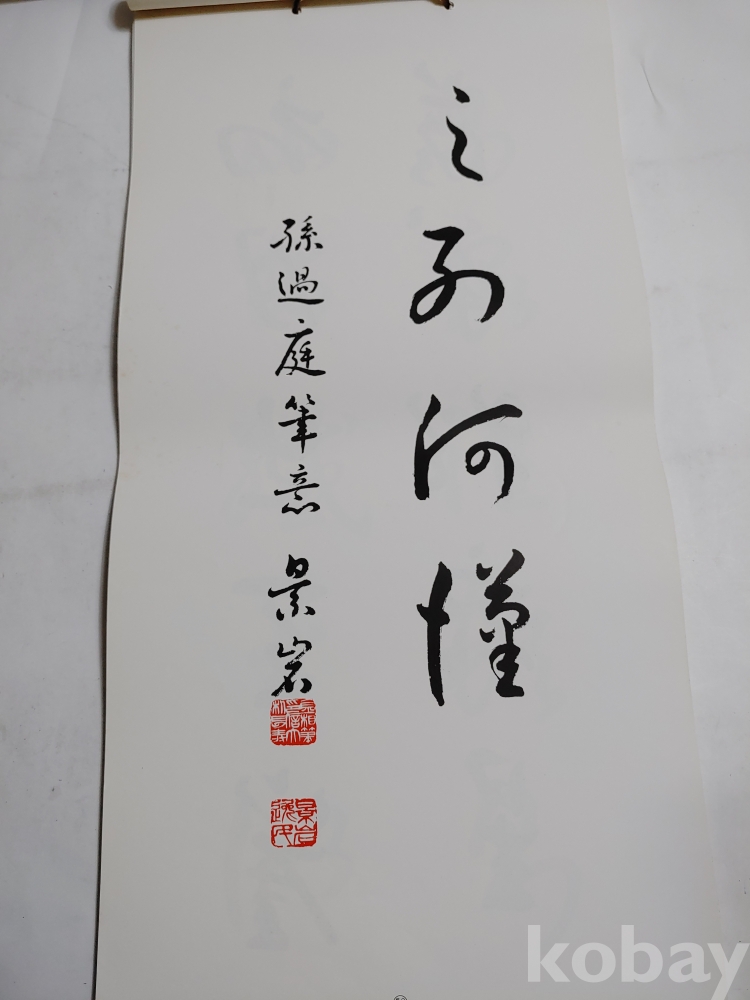 之列河漢
孫過庭筆意 景岩
kobay